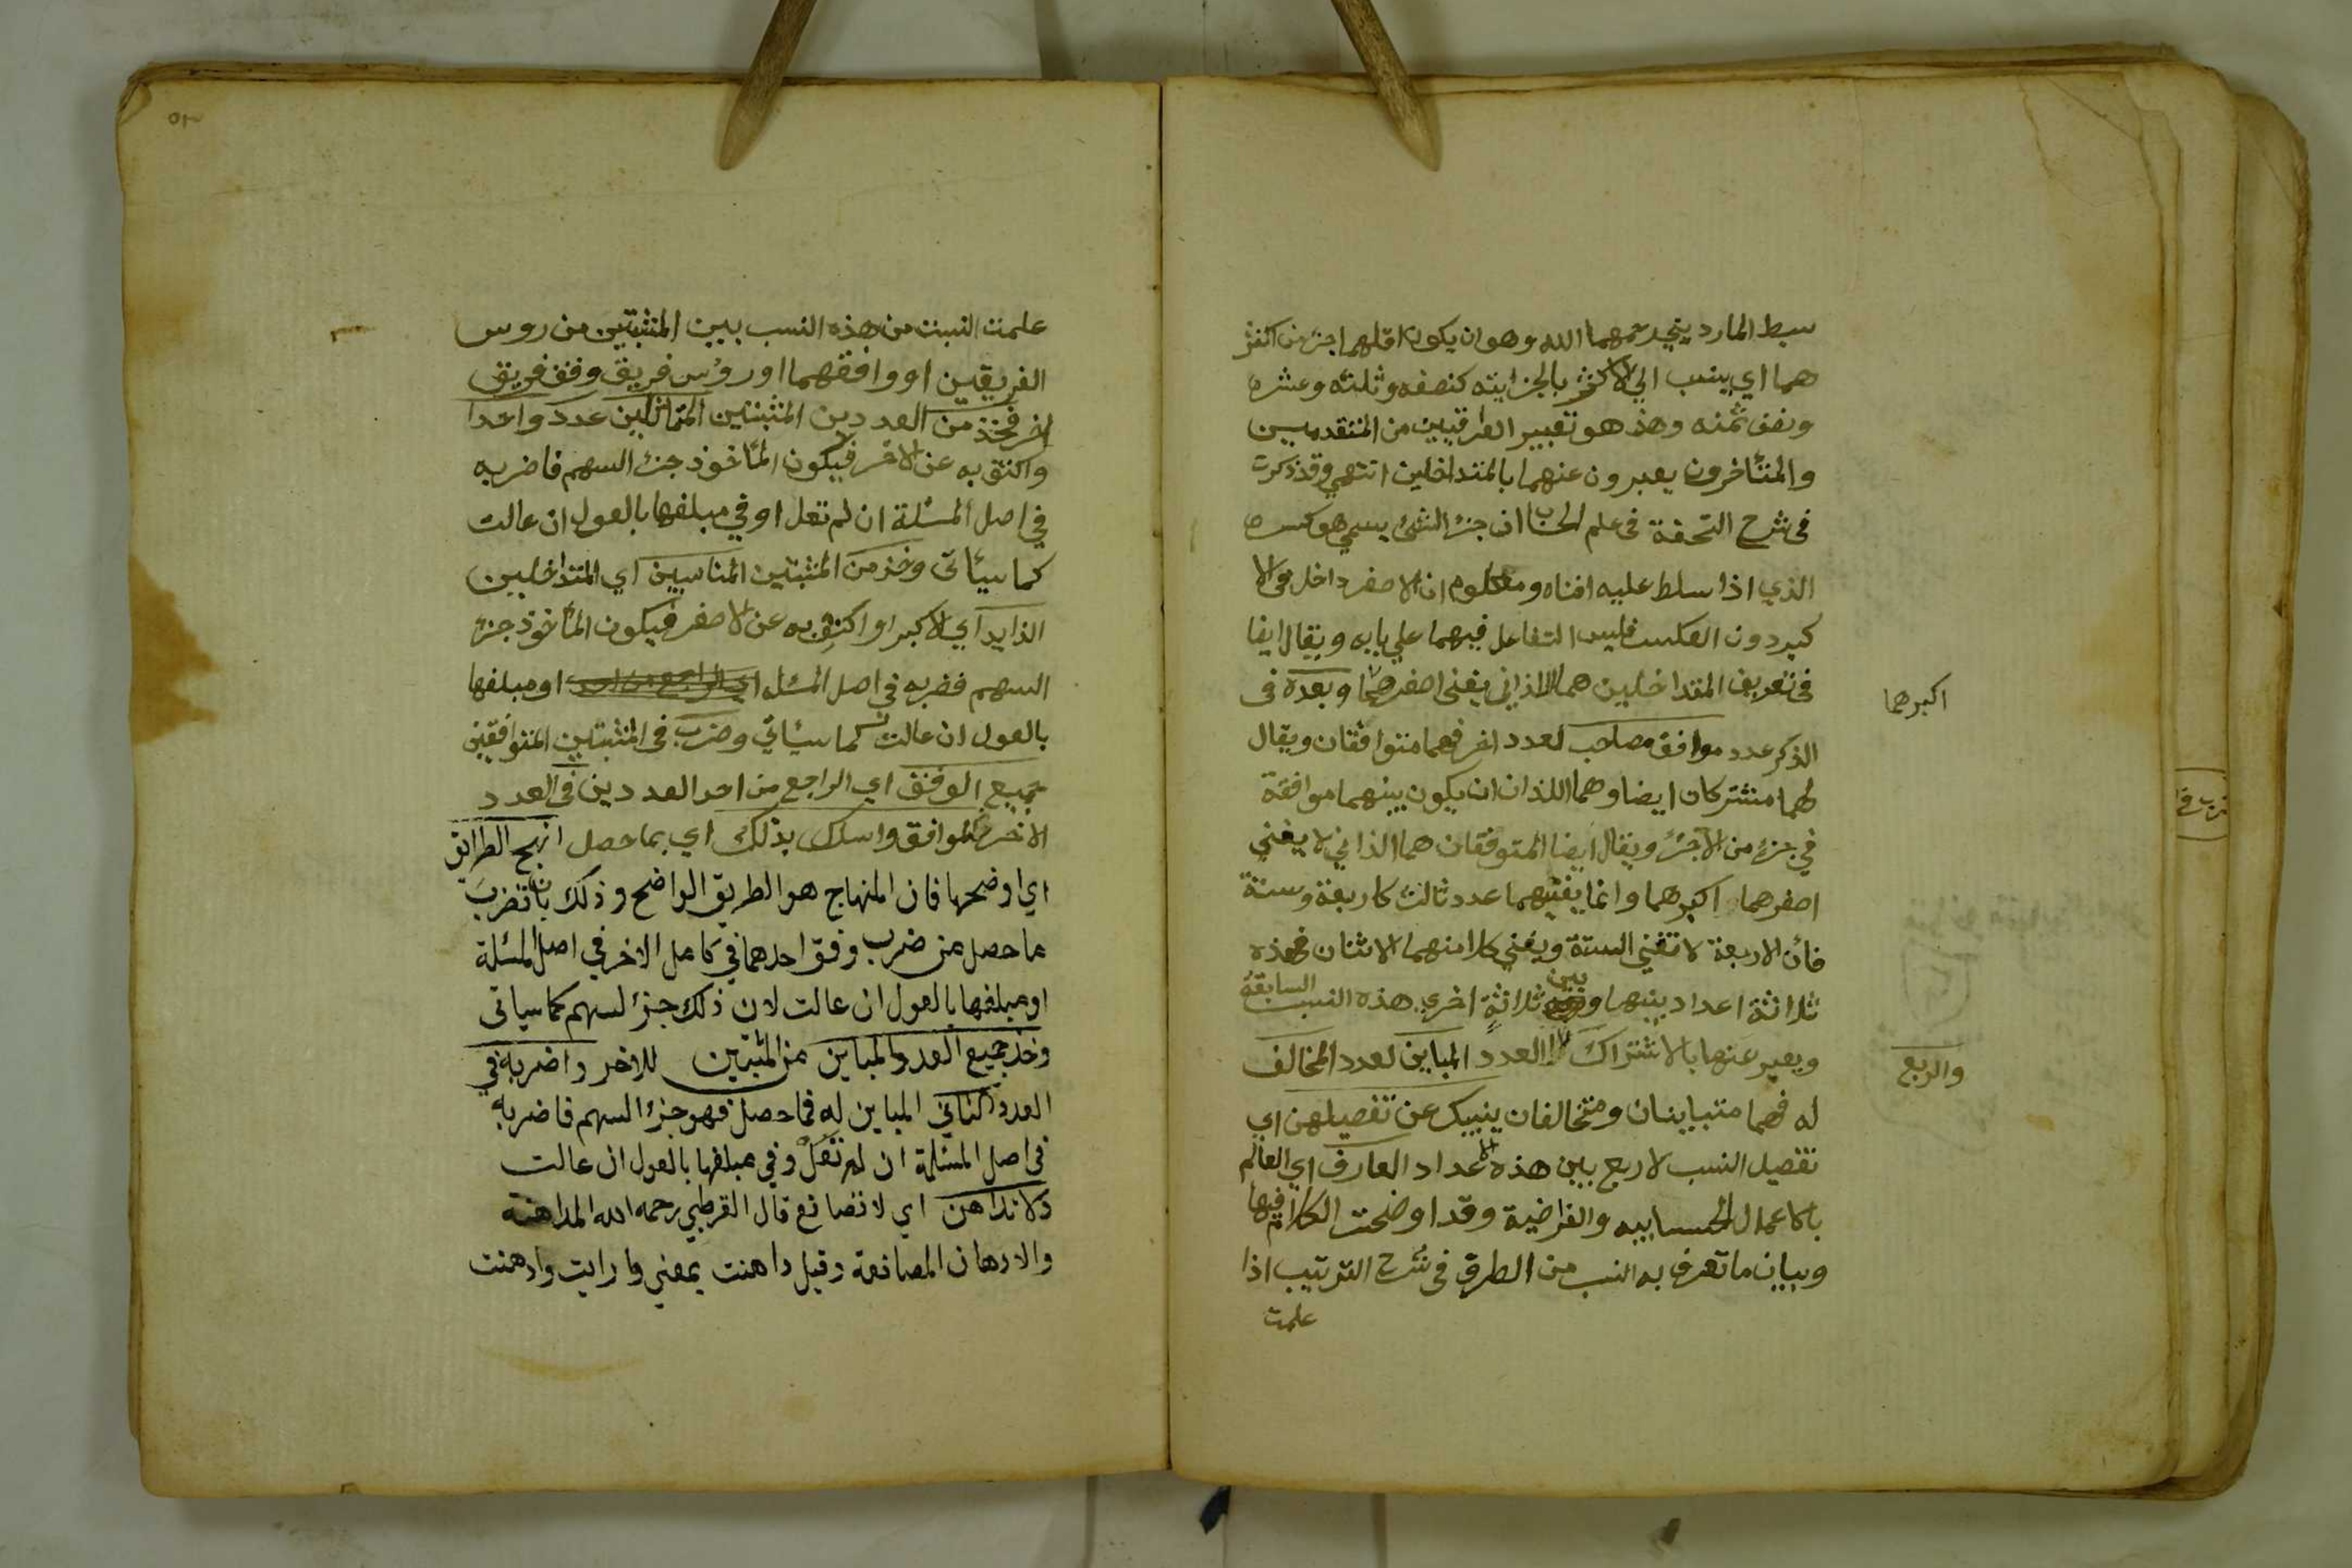 سبط المارديني رحمهما الله وهو ان يكون اقلهما جزء من اكثر
هما اي ينسب الي الاكثر بالجزايته كنصفه وثلثه وعشره
ونصف ثمنه وهذ هو تعبير العراقيين من المتقدميين
والمتأخرون يعبرون عنهما بالمتداخلين انتهي وقد ذكرت
في شرح التحفة في علم الحساب ان جزء الشئ يسمي هو كسره
الذي اذا سلط عليه افناه ومعلوم ان الاصغر داخل في الا
كبر دون العكس فليس التفاعل فيهما علي بابه ويقال ايضا
في تعريف المتداخلين هما اللذاني يفنى اصغرهما وبعده في
اكبرهما
الذكر عدد موافق مصاحب لعدد اخر فهما متوافقان ويقال
لهما مشتركان ايضا وهما اللذان ان يكون بينهما موافقة
في جزء من الاجزء ويقال ايضا المتوفقان هما الذاني لا يفني
اصغرهما اكبرهما وانما يفنيهما عدد ثالث كاربعة وستة
فأن الاربعة لا تفني الستة ويفني كلا منهما الاثنان فهذه
ثلاثة اعداد بينها وبين ثلاثة اخري هذه النسب السابقة
والربع
ويعبر عنها بالاشتراك العدد المباين لعدد المخالف
له فهما متباينان ومتخالفان ينبيك عن تفصيلهن اي
تفصيل النسب لاربع بين هذه الأعداد العارف اي العالم
بالاعمال الحسابيه والفراضية وقد اوضحت الكلام فيها
وبيان ما تعرف به النسب من الطرق في شرح الترتيب اذا
علمت
علمت النسبت من هذه النسب بيين المثبتين من روس
الفريقين او وافقهما او رؤس فريق وفق فريق
اخر فخذ من العددين المثبتين المتماثلين عدد واحدا
واكتف به عن الاخر فيكون المأخوذ جزء السهم فاضربه
في اصل المسئلة ان لم تعل او في مبلغها بالعول ان عالت
كما سيأتى وخذ من المثبتين المناسبين اي المتداخلين
الزايد اي الاكبر او اكتف به عن الاصغر فيكون المأخوذ جزء
السهم فضربه في اصل المسئله او مبلغها
بالعول ان عالت كما سيأتي وضرب في المثبتين المتوافقين
جميع الوفق اي الراجع من احد العددين في العدد
الاخر الموافق واسلك بذلك اي بما حصل انهج الطرائق
اي اوضحها فان المنهاج هو الطريق الواضح وذلك بان تضرب
ما حصل من ضرب وفق احدهما في كامل الاخر في اصل المسئلة
او مبلغها بالعول ان عالت لان ذلك جزء لسهم كما سياتى
وخذ جميع العدد المباين من المثبتين للاخر واضربه في
العدد الثاني المباين له فما حصل فهو جزء السهم فاضربه
في اصل المسئلة ان لم تعل وفي مبلغها بالعول ان عالت
ولا تداهن اي لا تصانع قال القرطبي رحمه الله المداهنة
والادهان المصانعة وقيل داهنت بمعني وارايت وادهنت